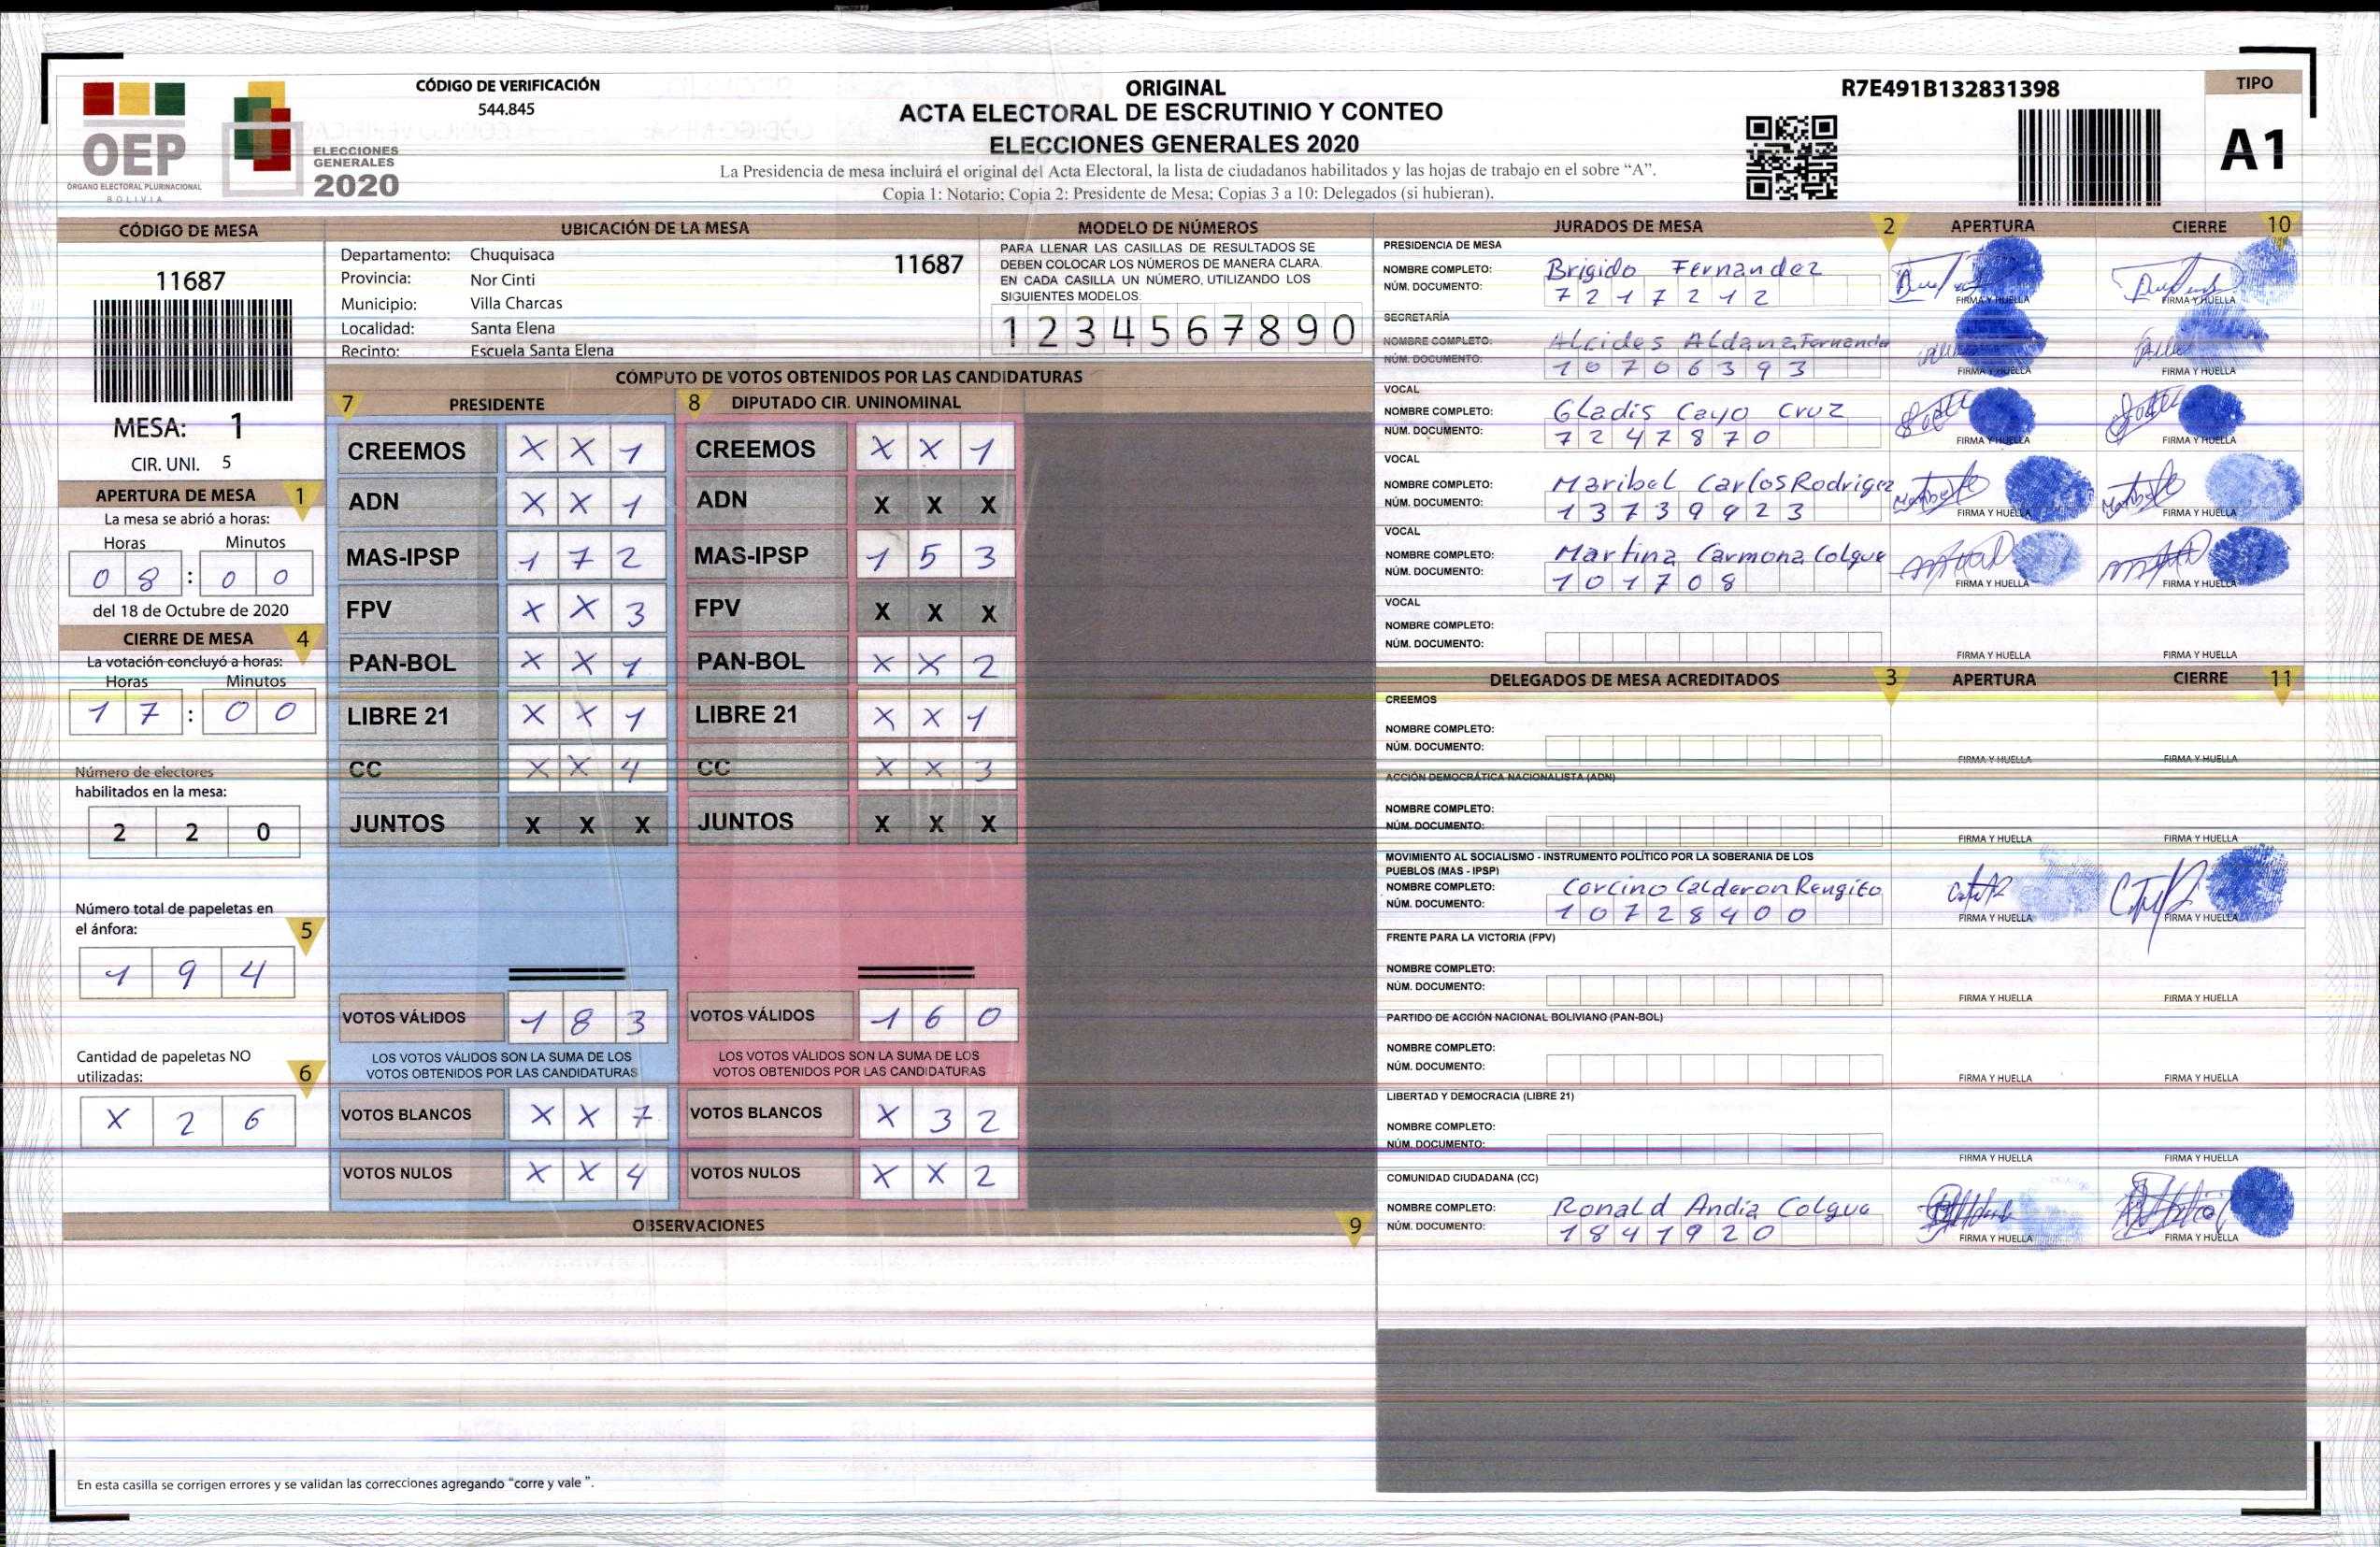 CÓDIGO DE VERIFICACIÓN
544.845
OEP
ÓRGANO ELECTORAL PLURINACIONAL
BOLIVIA
ELECCIONES
GENERALES
2020
ORIGINAL
ACTA ELECTORAL DE ESCRUTINIO Y CONTEO
ELECCIONES GENERALES 2020
La Presidencia de mesa incluirá el original del Acta Electoral, la lista de ciudadanos habilitados y las hojas de trabajo en el sobre “A”.
Copia 1: Notario; Copia 2: Presidente de Mesa; Copias 3 a 10: Delegados (si hubieran).
R7E491B132831398
TIPO
A1
CÓDIGO DE MESA
11687
MESA: 1
CIR. UNI. 5
UBICACIÓN DE LA MESA
Departamento: Chuquisaca
11687
Provincia: Nor Cinti
Municipio: Villa Charcas
Localidad: Santa Elena
Recinto: Escuela Santa Elena
MODELO DE NÚMEROS
PARA LLENAR LAS CASILLAS DE RESULTADOS SE
DEBEN COLOCAR LOS NÚMEROS DE MANERA CLARA.
EN CADA CASILLA UN NÚMERO, UTILIZANDO LOS
SIGUIENTES MODELOS:
1 2 3 4 5 6 7 8 9 0
APERTURA DE MESA 1
La mesa se abrió a horas:
Horas Minutos
0 8 : 0 0
del 18 de Octubre de 2020
CIERRE DE MESA 4
La votación concluyó a horas:
Horas Minutos
1 7 : 0 0
Número de electores
habilitados en la mesa:
2 2 0
Número total de papeletas en
el ánfora: 5
1 9 4
Cantidad de papeletas NO
utilizadas: 6
X 2 6
CÓMPUTO DE VOTOS OBTENIDOS POR LAS CANDIDATURAS
7 PRESIDENTE
CREEMOS X X 1
ADN X X 1
MAS-IPSP 1 7 2
FPV X X 3
PAN-BOL X X 1
LIBRE 21 X X 1
CC X X 4
JUNTOS X X X
VOTOS VÁLIDOS 1 8 3
LOS VOTOS VÁLIDOS SON LA SUMA DE LOS
VOTOS OBTENIDOS POR LAS CANDIDATURAS
VOTOS BLANCOS X X 7
VOTOS NULOS X X 4
8 DIPUTADO CIR. UNINOMINAL
CREEMOS X X 1
ADN X X X
MAS-IPSP 1 5 3
FPV X X X
PAN-BOL X X 2
LIBRE 21 X X 1
CC X X 3
JUNTOS X X X
VOTOS VÁLIDOS 1 6 0
LOS VOTOS VÁLIDOS SON LA SUMA DE LOS
VOTOS OBTENIDOS POR LAS CANDIDATURAS
VOTOS BLANCOS X 3 2
VOTOS NULOS X X 2
OBSERVACIONES 9
En esta casilla se corrigen errores y se validan las correcciones agregando “corre y vale”.
JURADOS DE MESA 2 APERTURA CIERRE 10
PRESIDENCIA DE MESA
NOMBRE COMPLETO: Brigido Fernandez
NÚM. DOCUMENTO: 7 2 1 7 2 1 2
FIRMA Y HUELLA FIRMA Y HUELLA
SECRETARÍA
NOMBRE COMPLETO: Alcides Aldana Fernande
NÚM. DOCUMENTO: 1 0 7 0 6 3 9 3
FIRMA Y HUELLA FIRMA Y HUELLA
VOCAL
NOMBRE COMPLETO: Gladis Cayo Cruz
NÚM. DOCUMENTO: 7 2 4 7 8 7 0
FIRMA Y HUELLA FIRMA Y HUELLA
VOCAL
NOMBRE COMPLETO: Maribel Carlos Rodrigez
NÚM. DOCUMENTO: 1 3 7 3 9 9 2 3
FIRMA Y HUELLA FIRMA Y HUELLA
VOCAL
NOMBRE COMPLETO: Martina Carmona Colque
NÚM. DOCUMENTO: 1 0 1 7 0 8
FIRMA Y HUELLA FIRMA Y HUELLA
VOCAL
NOMBRE COMPLETO:
NÚM. DOCUMENTO:
FIRMA Y HUELLA FIRMA Y HUELLA
DELEGADOS DE MESA ACREDITADOS 3 APERTURA CIERRE 11
CREEMOS
NOMBRE COMPLETO:
NÚM. DOCUMENTO:
FIRMA Y HUELLA FIRMA Y HUELLA
ACCIÓN DEMOCRÁTICA NACIONALISTA (ADN)
NOMBRE COMPLETO:
NÚM. DOCUMENTO:
FIRMA Y HUELLA FIRMA Y HUELLA
MOVIMIENTO AL SOCIALISMO - INSTRUMENTO POLÍTICO POR LA SOBERANIA DE LOS
PUEBLOS (MAS - IPSP)
NOMBRE COMPLETO: Corcino Calderon Rengifo
NÚM. DOCUMENTO: 1 0 7 2 8 4 0 0
FIRMA Y HUELLA FIRMA Y HUELLA
FRENTE PARA LA VICTORIA (FPV)
NOMBRE COMPLETO:
NÚM. DOCUMENTO:
FIRMA Y HUELLA FIRMA Y HUELLA
PARTIDO DE ACCIÓN NACIONAL BOLIVIANO (PAN-BOL)
NOMBRE COMPLETO:
NÚM. DOCUMENTO:
FIRMA Y HUELLA FIRMA Y HUELLA
LIBERTAD Y DEMOCRACIA (LIBRE 21)
NOMBRE COMPLETO:
NÚM. DOCUMENTO:
FIRMA Y HUELLA FIRMA Y HUELLA
COMUNIDAD CIUDADANA (CC)
NOMBRE COMPLETO: Ronald Andia Colque
NÚM. DOCUMENTO: 1 8 4 1 9 2 0
FIRMA Y HUELLA FIRMA Y HUELLA